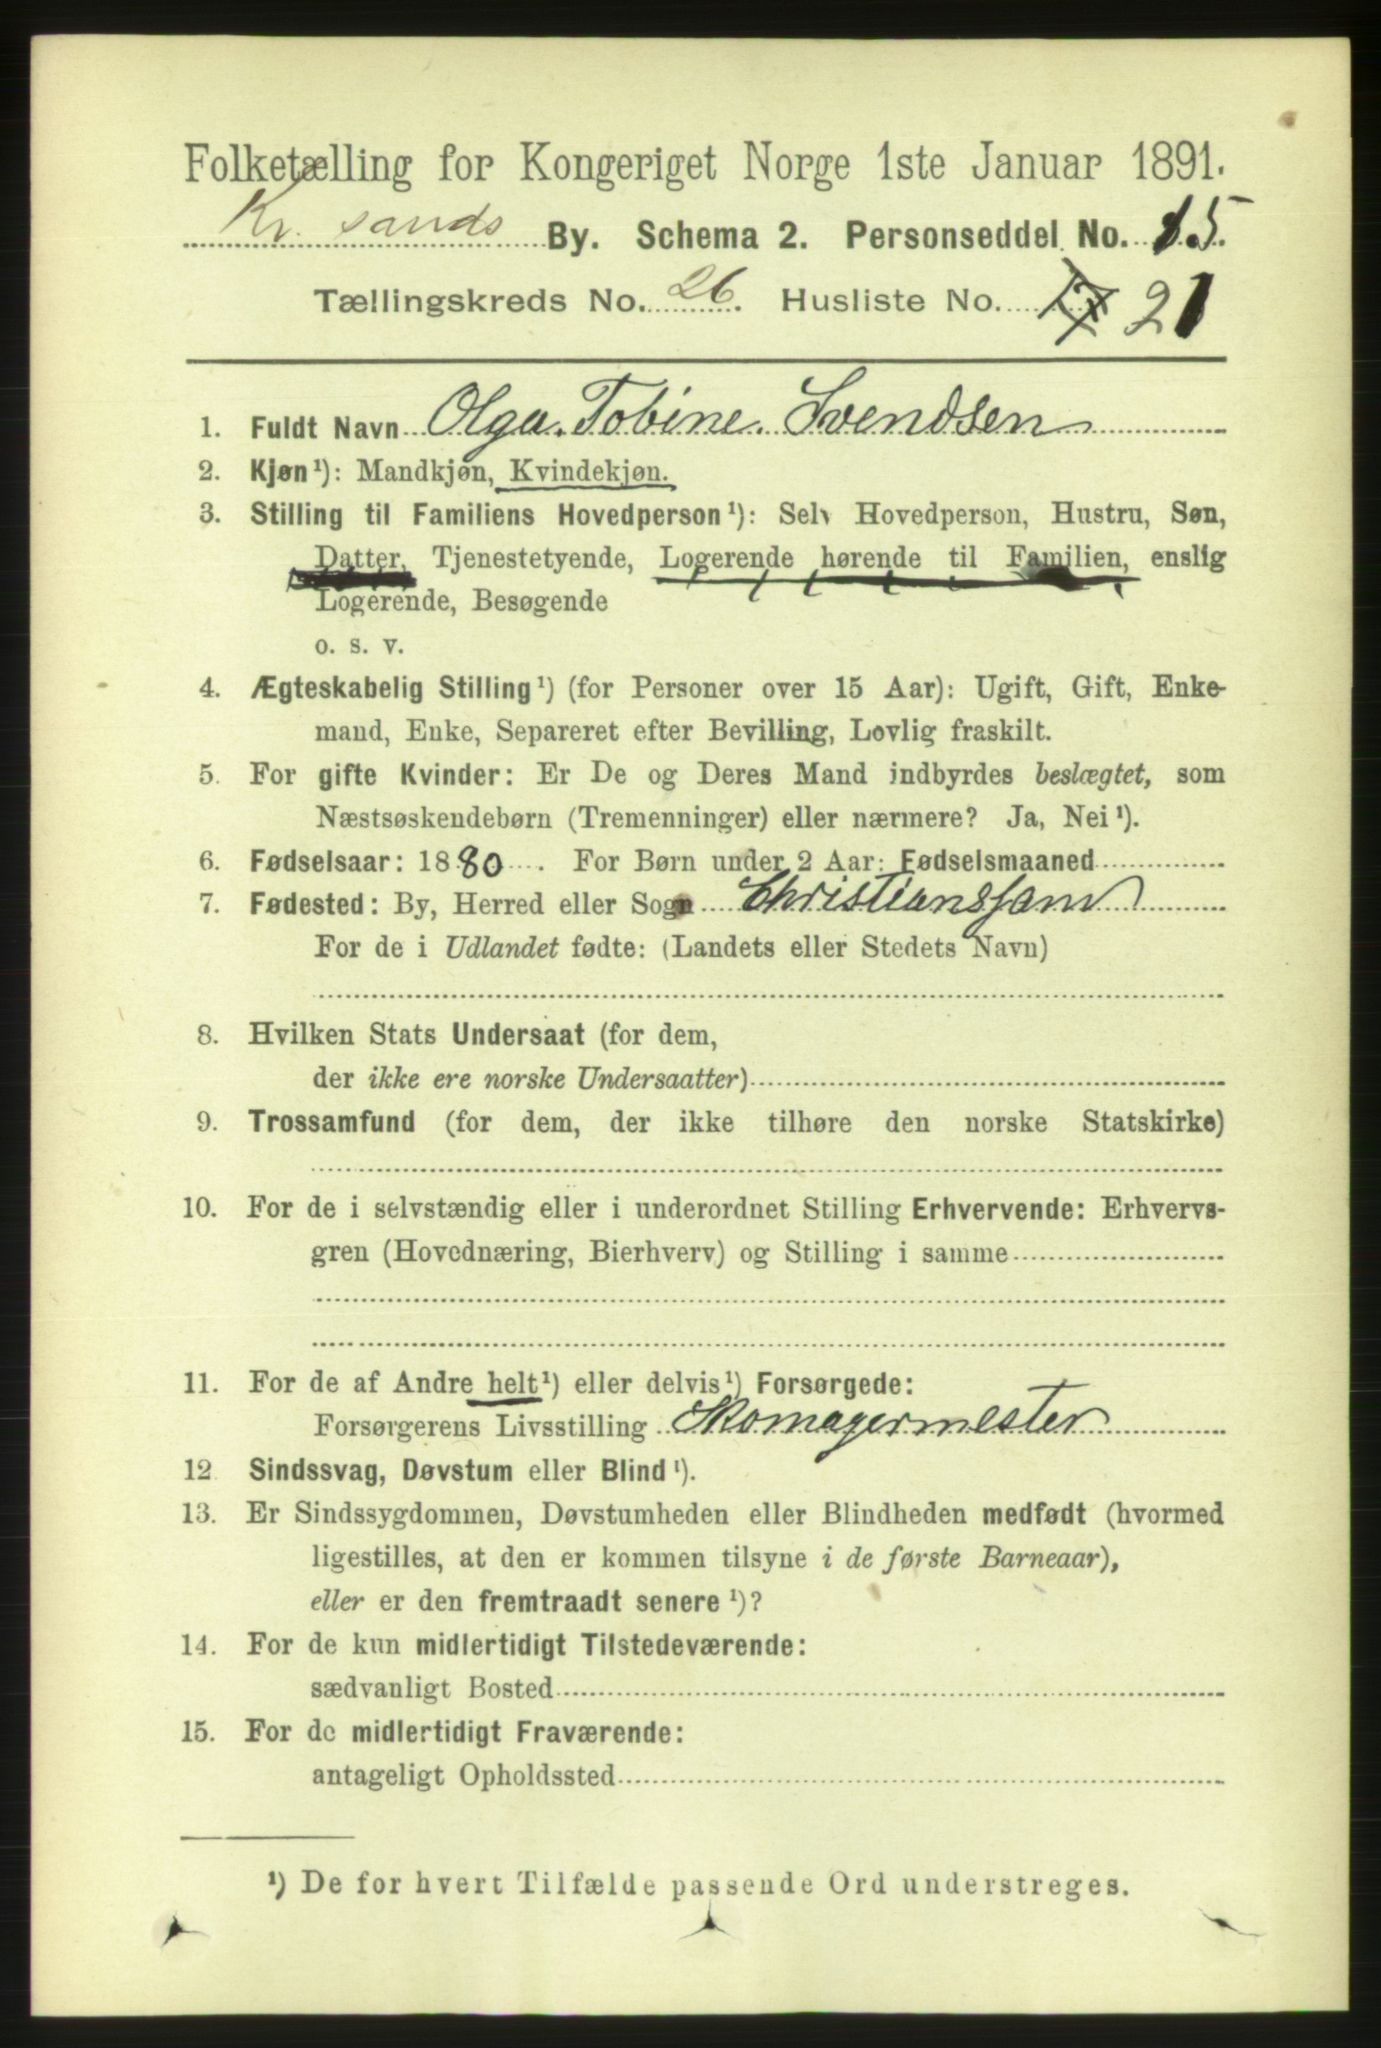 Folketælling for Kongeriget Norge 1ste Januar 1891.
Kr. sands By. Schema 2. Personseddel No. 15.
Tællingskreds No. 26. Husliste No. 21
1. Fuldt Navn Olga Tobine Svendsen
2. Kjøn¹): Mandkjøn, Kvindekjøn.
3. Stilling til Familiens Hovedperson¹): Selv Hovedperson, Hustru, Søn,
Datter, Tjenestetyende, Logerende hørende til Familien, enslig
Logerende, Besøgende
o. s. v.
4. Ægteskabelig Stilling¹) (for Personer over 15 Aar): Ugift, Gift, Enke-
mand, Enke, Separeret efter Bevilling, Lovlig fraskilt.
5. For gifte Kvinder: Er De og Deres Mand indbyrdes beslægtet, som
Næstsøskendebørn (Tremenninger) eller nærmere? Ja, Nei¹).
6. Fødselsaar: 1880. For Børn under 2 Aar: Fødselsmaaned
7. Fødested: By, Herred eller Sogn Christianssand
For de i Udlandet fødte: (Landets eller Stedets Navn)
8. Hvilken Stats Undersaat (for dem,
der ikke ere norske Undersaatter)
9. Trossamfund (for dem, der ikke tilhøre den norske Statskirke)
10. For de i selvstændig eller i underordnet Stilling Erhvervende: Erhvervs-
gren (Hovednæring, Bierhverv) og Stilling i samme
11. For de af Andre helt¹) eller delvis¹) Forsørgede:
Forsørgerens Livsstilling Skomagermester
12 Sindssvag, Døvstum eller Blind¹).
13. Er Sindssygdommen, Døvstumheden eller Blindheden medfødt (hvormed
ligestilles, at den er kommen tilsyne i de første Barneaar),
eller er den fremtraadt senere¹)?
14. For de kun midlertidigt Tilstedeværende:
sædvanligt Bosted
15. For de midlertidigt Fraværende:
antageligt Opholdssted
¹) De for hvert Tilfælde passende Ord understreges.